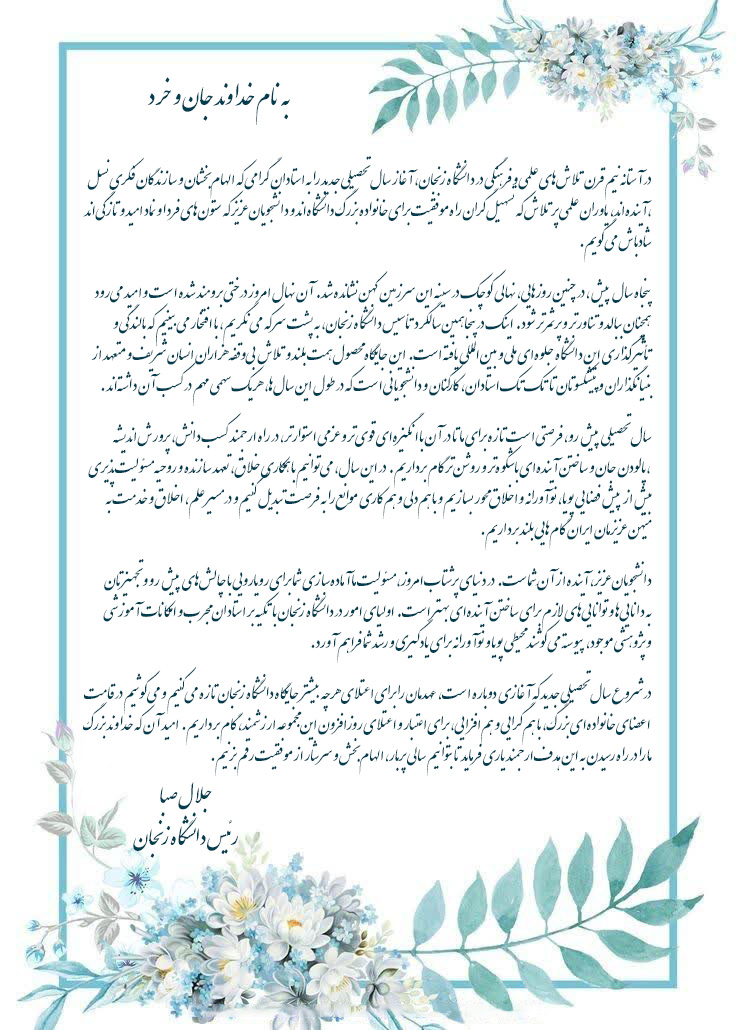 به نام خداوند جان و خرد
در آستانه نیم قرن تلاش‌های علمی و فرهنگی در دانشگاه زنجان، آغاز سال تحصیلی جدید را به استادان گرامی که الهام بخشان و سازندگان فکری نسل
آینده‌اند، یاوران علمی پر تلاش که تسهیل گران راه موفقیت برای خانواده بزرگ دانشگاه‌اند و دانشجویان عزیز که ستون های فردا و نماد امید و تازگی اند،
شادباش می گویم.
پنجاه سال پیش، در چنین روزهایی، نهالی کوچک در سینه این سرزمین کهن نشانده شد. آن نهال امروز درختی برومند شده است و امید می رود
همچنان ببالد و تناورتر و پرثمرتر شود. اینک در پنجاهمین سالگرد تاسیس دانشگاه زنجان، به پشت سر که می نگریم، با افتخار می بینیم که بالندگی و
تأثیرگذاری این دانشگاه جلوه ای ملی و بین المللی یافته است. این جایگاه محصول همت بلند و تلاش بی وقفه هزاران انسان شریف و متعهد از
بنیانگذاران و پیشکسوتان تا تک تک استادان، کارکنان و دانشجویانی است که در طول این سال ها، هر یک سهمی مهم در کسب آن داشته‌اند.
سال تحصیلی پیش رو، فرصتی است تازه برای ما تا در آن با انگیزه‌ای قوی تر و عزمی استوارتر، در راه ارجمند کسب دانش، پرورش اندیشه
، پالودن جان و ساختن آینده ای باشکوه تر و روشن تر گام برداریم. در این سال، می توانیم با همکاری خلاق، تعهد سازنده و روحیه مسئولیت پذیری
بیش از پیش فضایی پویا، نوآورانه و اخلاق محور بسازیم و با هم دلی و هم کاری موانع را به فرصت تبدیل کنیم و در مسیر علم، اخلاق و خدمت به
میهن عزیزمان ایران گام هایی بلند برداریم.
دانشجویان عزیز، آینده از آن شماست. در دنیای پرشتاب امروز، مسئولیت ما آماده سازی شما برای رویارویی با چالش های پیش رو و تجهیزتان
به دانایی ها و توانایی های لازم برای ساختن آینده ای بهتر است. اولیای امور در دانشگاه زنجان با تکیه بر استادان مجرب و امکانات آموزشی
و پژوهشی موجود، پیوسته می کوشند محیطی پویا و نوآورانه برای یادگیری و رشد شما فراهم آورد.
در شروع سال تحصیلی جدید که آغازی دوباره است، عهدمان را برای اعتلای هرچه بیشتر جایگاه دانشگاه زنجان تازه می کنیم و می کوشیم در قامت
اعضای خانواده ای بزرگ، با هم گرایی و هم افزایی، برای اعتبار و اعتلای روزافزون این مجموعه ارزشمند، گام برداریم. امید آن که خداوند بزرگ
ما را در راه رسیدن به این هدف ارجمند یاری فرماید تا بتوانیم سالی پربار، الهام بخش و سرشار از موفقیت رقم بزنیم.
جلال صبا
رئیس دانشگاه زنجان